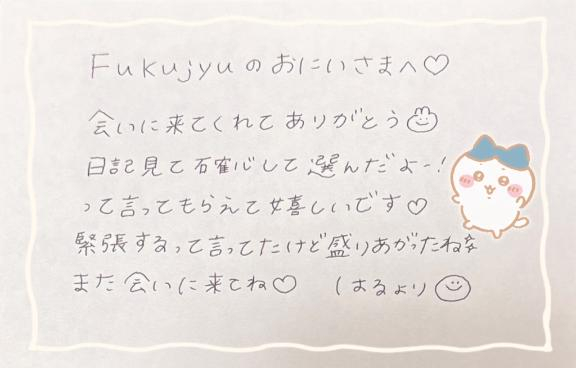 Fukujyuのおにいさまへ♡
会いに来てくれてありがとう
日記見て確心して選んだよー!
って言ってもらえて嬉しいです♡
緊張するって言ってたけど盛りあがったね☆
また会いに来てね♡ はるより